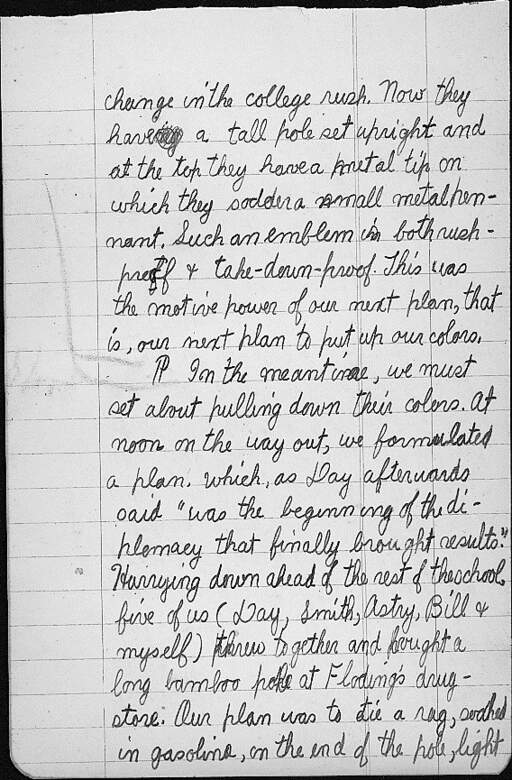 change in the college rush. Now they
have a tall pole set upright and
at the top they have a metal tip on
which they sodder a small metal pen-
nant. Such an emblem is both rush-
proof & take-down-proof. This was
the motive power of our next plan, that
is, our next plan to put up our colors.
¶ In the meantime, we must
set about pulling down their colors. At
noon on the way out, we formulated
a plan. which, as Day afterwards
said "was the beginning of the di-
plomacy that finally brought results."
Hurrying down ahead of the rest of the school,
five of us (Day, Smith, Astry, Bill &
myself) threw together and bought a
long bamboo pole at Floding's drug-
store. Our plan was to tie a rag, soaked
in gasoline, on the end of the pole, light